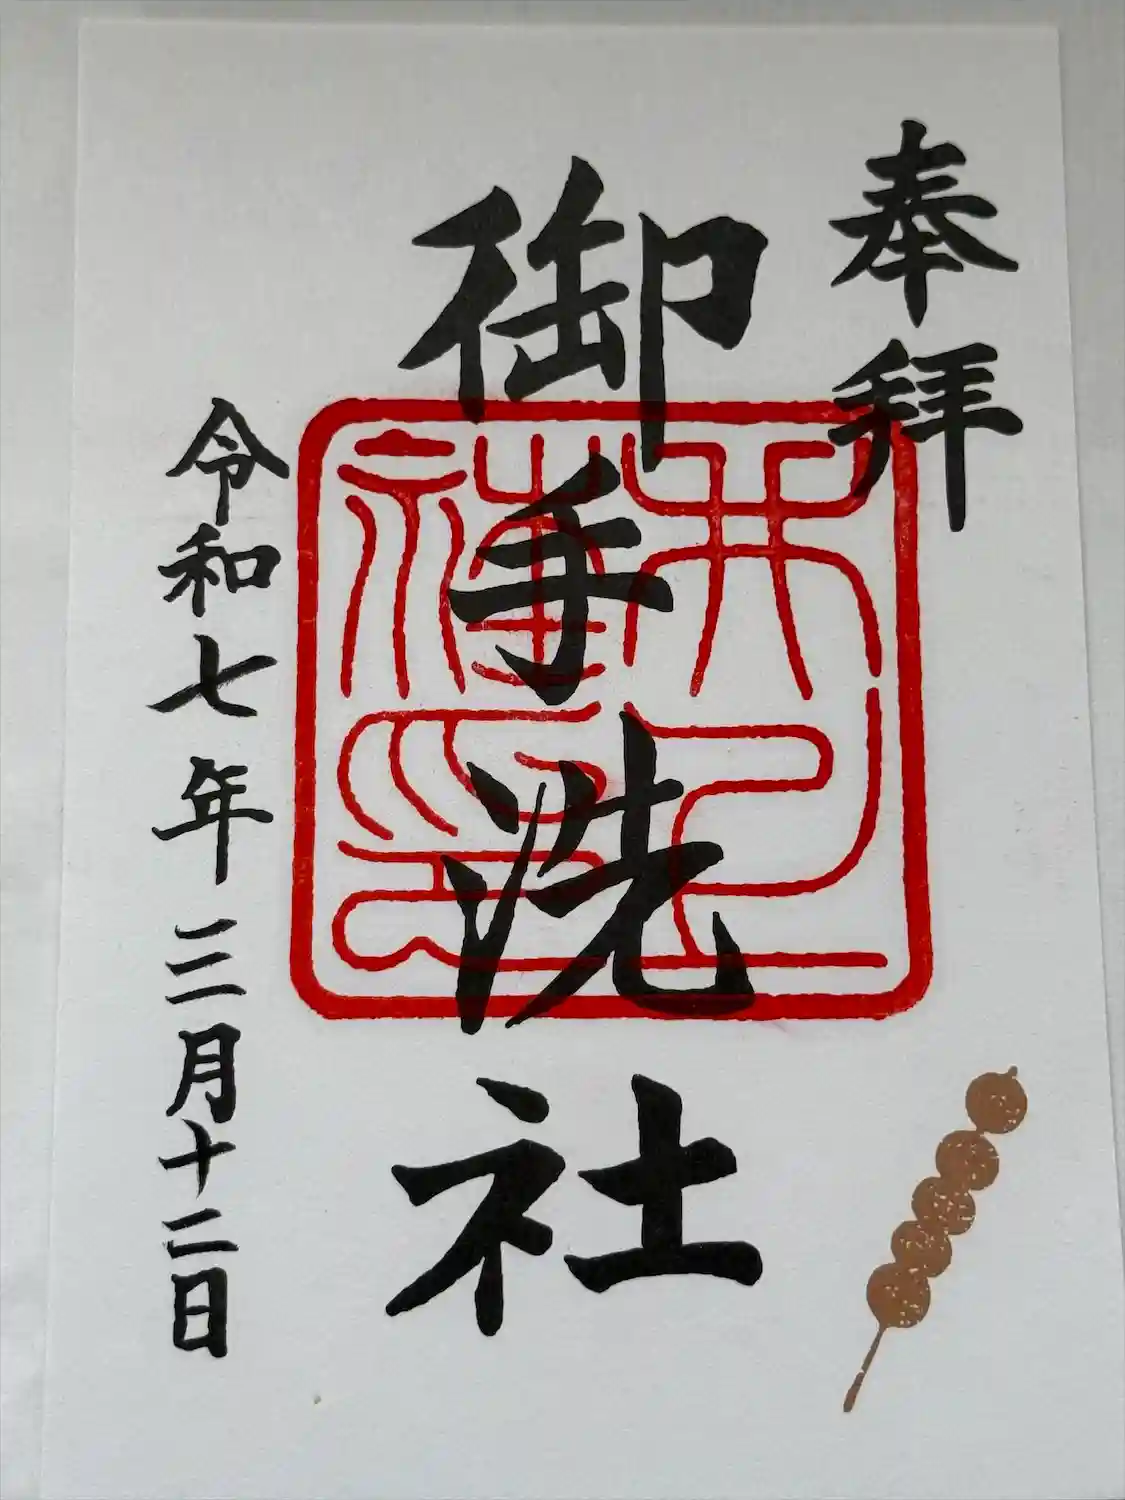 奉拝
御手洗社
令和七年三月十二日